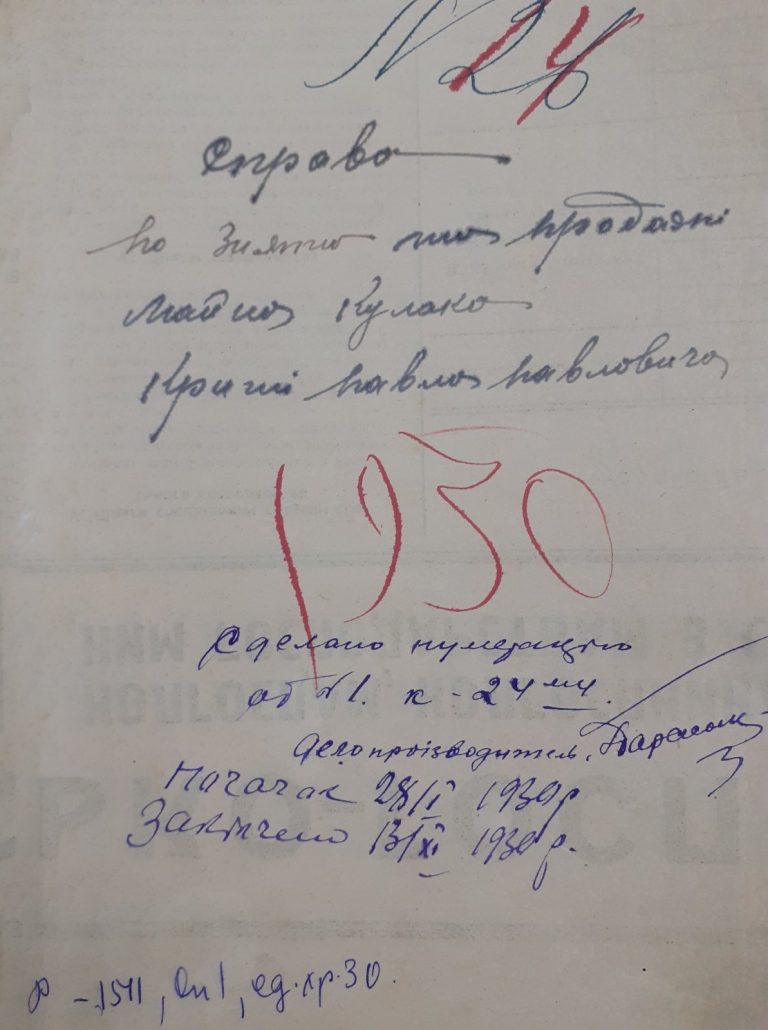 N 24
Справа
по Зняттю та продажі
майна Кулака
Криші Павла Павловича
1930
Сделано нумерацию
от №1. к - 24 ми.
Делопроізводитель
Начачок 28/I 1930 р
Закінчено 13/XI 1930 р.
Р - 1511, Оп 1, ед. хр. 30.